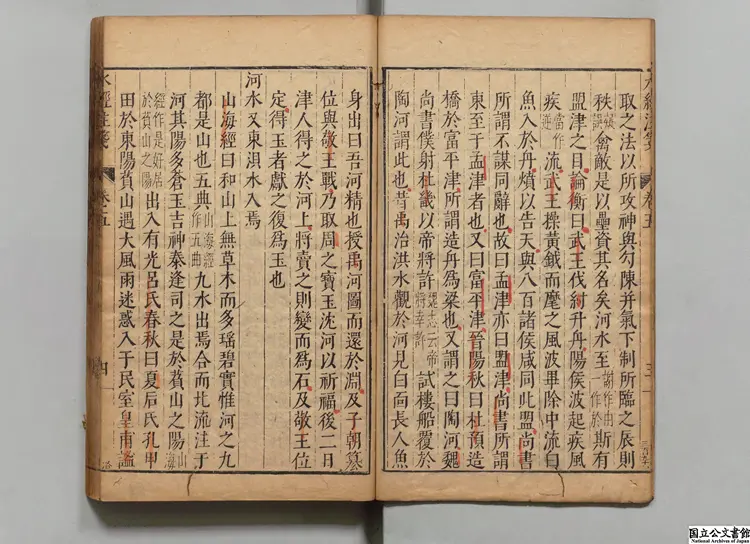 水經注箋 卷五 三
取之法以所攻神與勾陳并氣下制所臨之辰則
秩疑誤禽敵是以壘資其名矣河水至謝作由一作於斯有
盟津之目論衡曰武王伐紂升舟陽侯波起疾風
疾當作逆流武王操黃鉞而麾之風波畢除中流白
魚入於舟燔以告天與八百諸侯咸同此盟尚書
所謂不謀同辭也故曰孟津亦曰盟津尚書所謂
東至于孟津者也又曰富平津晉陽秋曰杜預造
橋於富平津所謂造舟為梁也又謂之曰陶河魏
尚書僕射杜畿以帝將許魏志云帝將幸許試樓船覆於
陶河謂此也昔禹治洪水觀於河見白面長人魚
身出曰吾河精也授禹河圖而還於淵及子朝篡
位與敬王戰乃取周之寶玉沈河以祈福後二日
津人得之於河上將賣之則變而為石及敬王位
定得玉者獻之復為玉也
河水又東湨水入焉
山海經曰和山上無草木而多瑤碧實惟河之九
都是山也五典山海經作五曲九水出焉合而北流注于
河其陽多蒼玉吉神泰逢司之是於萯山之陽山海
經作是好居於萯山之陽出入有光呂氏春秋曰夏后氏孔甲
田於東陽萯山遇大風雨迷惑入于民室皇甫謐
水經注箋 卷五 四
国立公文書館
National Archives of Japan